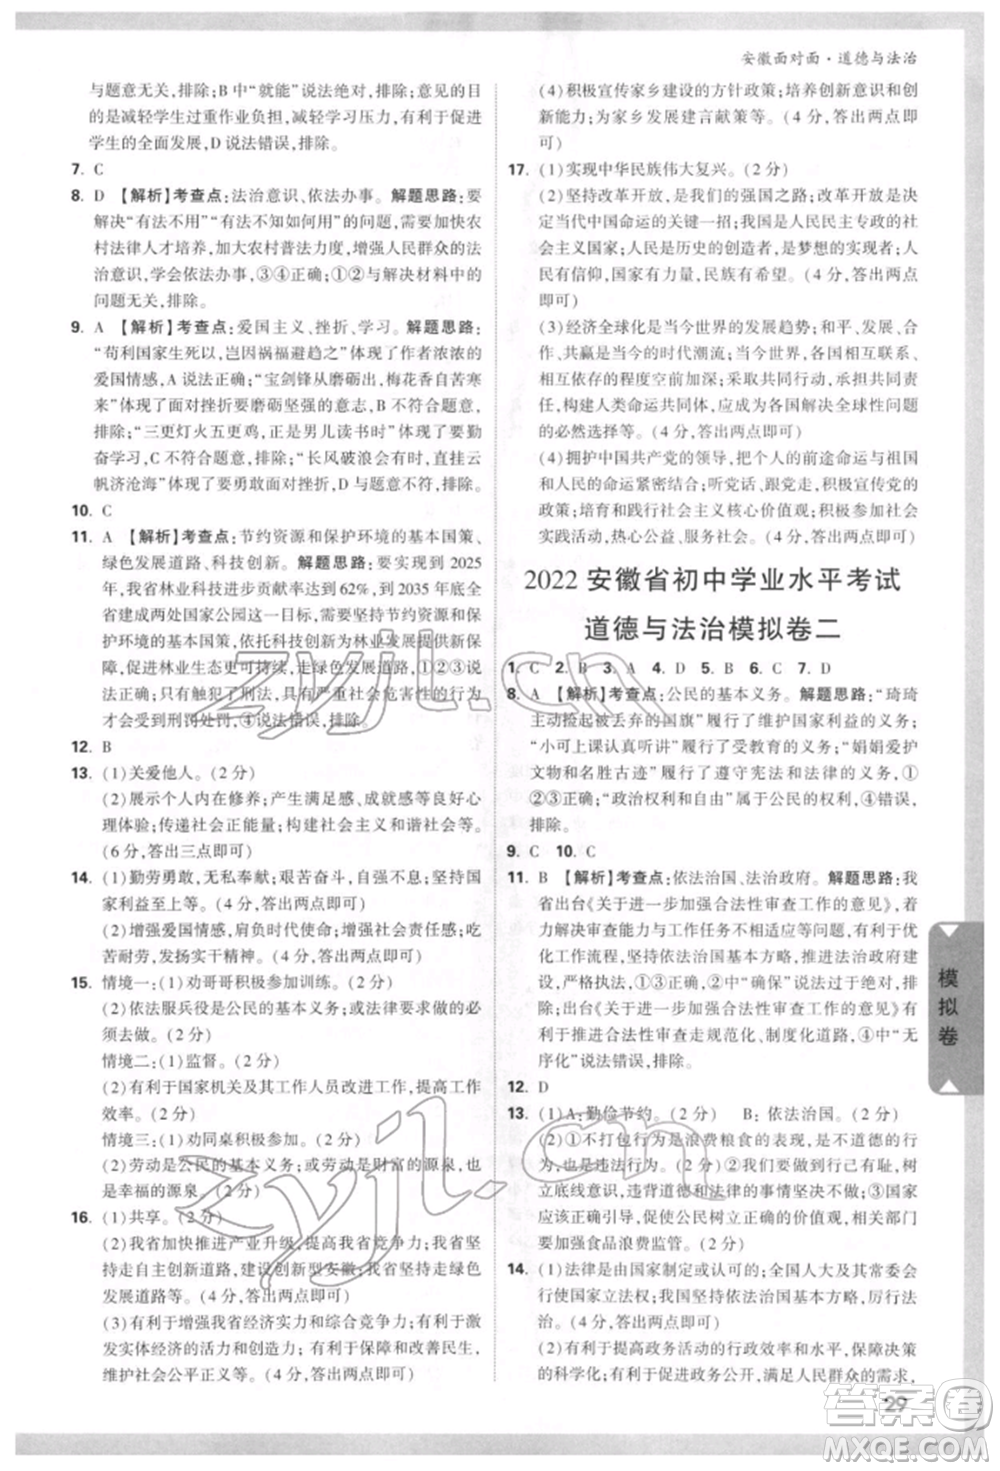 安徽面对面·道德与法治
与题意无关,排除;B中“就能”说法绝对,排除;意见的目
的是减轻学生过重作业负担,减轻学习压力,有利于促进
学生的全面发展,D说法错误,排除。
7. C
8. D 【解析】考查点:法治意识、依法办事。解题思路:要
解决“有法不用”“有法不知如何用”的问题,需要加快农
村法律人才培养,加大农村普法力度,增强人民群众的法
治意识,学会依法办事,③④正确;①②与解决材料中的
问题无关,排除。
9. A 【解析】考查点:爱国主义、挫折、学习。解题思路:
“苟利国家生死以,岂因祸福避趋之”体现了作者浓浓的
爱国情感,A说法正确;“宝剑锋从磨砺出,梅花香自苦寒
来”体现了面对挫折要磨砺坚强的意志,B不符合题意,
排除;“三更灯火五更鸡,正是男儿读书时”体现了要勤
奋学习,C不符合题意,排除;“长风破浪会有时,直挂云
帆济沧海”体现了要勇敢面对挫折,D不符合题意,排除。
10. C
11. A 【解析】考查点:节约资源和保护环境的基本国策、
绿色发展道路、科技创新。解题思路:要实现到2025
年,我省林业科技进步贡献率达到60%,到2035年底全
省建成两处国家公园这一目标,需要坚持节约资源和保
护环境的基本国策,依托科技创新为林业发展提供保
障,使林业更可持续,走绿色发展道路,①②③说法
正确;对破坏林业资源且具有严重社会危害性的行为
才会受到刑罚处罚,④说法错误,排除。
12. B
13. (1)关爱他人。(2分)
(2)展示个人内在修养;产生满足感、成就感等良好心
理体验;传递社会正能量;有利于促进社会和谐等。
(6分,答出三点即可)
14. (1)勤劳勇敢,无私奉献;艰苦奋斗,自强不息;国家
利益至上等。(4分,答出两点即可)
(2)增强爱国情感,肩负时代使命,积极奉献社会;吃苦
耐劳,发扬实干精神。(4分,答出两点即可)
15. 情境一:(1)劝哥哥积极参加训练。(2分)
(2)依法服兵役是公民的基本义务;法律要求做的,必
须去做。(2分)
情境二:(1)监督。(2分)
(2)有利于国家机关及其工作人员改进工作,提高工作
效率。(2分)
情境三:(1)劝同桌积极参加。(2分)
(2)劳动是公民的基本义务;劳动是财富的源泉,也
是幸福的源泉。(2分)
16. (1)共享。(2分)
(2)我省加快推进产业升级,提高我省竞争力;我省坚
持走自主创新道路,建设创新型安徽;我省坚持走绿色
发展道路等。(4分,答出两点即可)
(3)有利于增强我省经济实力和综合竞争力;有利于激
发全社会创造力和发展活力;有利于保障和改善民生,
促进社会公平正义等。(4分,答出两点即可)
(4)积极宣传家乡建设的方针政策;培养创新意识,提高
创新能力;为家乡发展建言献策等。(4分,答出两点即可)
17. (1)实现中华民族伟大复兴。(2分)
(2)坚持改革开放,是我们的强国之路;改革开放是决
定当代中国命运的关键一招;我国是人民民主专政的社
会主义国家;人民是历史的创造者,是梦想的实现者;人
民有信仰,国家有力量,民族有希望。(4分,答出两点
即可)
(3)经济全球化是当今世界的发展趋势;和平、发展、合
作、共赢是当今的时代潮流;当今世界各国相互联系、
相互依存的程度空前加深;采取实际行动促进共同发展,
构建人类命运共同体,应成为各国解决全球性问题
的必然选择等。(4分,答出两点即可)
(4)拥护中国共产党的领导,把个人的前途命运与国家、
民族的前途命运紧密相连,听党话、跟党走;积极宣传党的
政策;培育和践行社会主义核心价值观;积极参加社会
实践活动,热心公益、服务社会。(4分,答出两点即可)
2022安徽省初中学业水平考试
道德与法治模拟卷二
1. C 2. B 3. A 4. D 5. B 6. C 7. D
8. A 【解析】考查点:公民的基本义务。解题思路:“琦琦
主动捡起被丢弃的国旗”履行了维护国家利益的义务;
“小可上课认真听讲”履行了受教育的义务;“娟娟爱护
文物和名胜古迹”履行了遵守宪法和法律的义务,①
②③正确;“政治权利和自由”属于公民的权利,④错误,
排除。
9. C 10. C
11. B 【解析】考查点:依法治国、法治政府。解题思路:我
省出台《关于进一步加强合法性审查工作的意见》,着
力解决审查能力与工作任务不相适应等问题,不断优化
工作流程,有利于落实依法治国基本方略,推进法治政府建
设,严格执法,①③正确;②中“确保”说法绝对,排
除;出台《关于进一步加强合法性审查工作的意见》,有
利于推进合法性审查走规范化、制度化道路,④中“无
序化”说法错误,排除。
12. D
13. (1)A:勤俭节约。 B:依法治国。(2分)
(2)①不打包行为是浪费粮食的表现,是不道德的行
为,我们要反对。(2分)②我们要在行为上行己有耻,树
立底线意识,违背道德和法律的事情坚决不做。(2分)③
正确引导,促使公民树立正确的价值观,相关部门也要
加强食品浪费监管。(2分)
14. (1)法律是由国家制定或认可的;全国人大及其常委会
行使国家立法权;我国坚持依法治国基本方略,厉行法
治等。(4分,答出两点即可)
(2)有利于提高政务活动的行政效率和水平,保障决策
的科学化;有利于推进政务公开,满足人民群众的需求,
模拟卷
29
zyjl.cn
zyjl.cn
答案卷
MXQE.COM